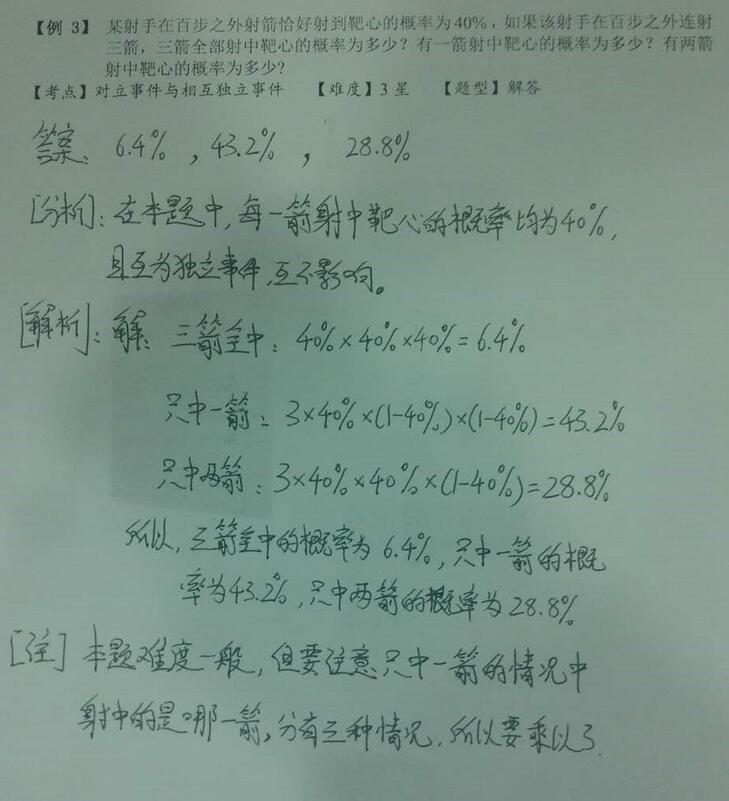 【例 3】 某射手在百步之外射箭恰好射到靶心的概率为40%，如果该射手在百步之外连射
三箭，三箭全部射中靶心的概率为多少？有一箭射中靶心的概率为多少？有两箭
射中靶心的概率为多少？
【考点】对立事件与相互独立事件 【难度】3 星 【题型】解答
答案： 6.4% ，43.2% ， 28.8%
[分析]：在本题中，每一箭射中靶心的概率均为40%，
且互为独立事件，互不影响。
[解析]：解：三箭全中：40%×40%×40%=6.4%
只中一箭：3×40%×(1-40%)×(1-40%)=43.2%
只中两箭：3×40%×40%×(1-40%)=28.8%
所以，三箭全中的概率为6.4%，只中一箭的概
率为43.2%，只中两箭的概率为28.8%
[注] 本题难度一般，但要注意只中一箭的情况中
射中的是哪一箭，分有三种情况，所以要乘以3.